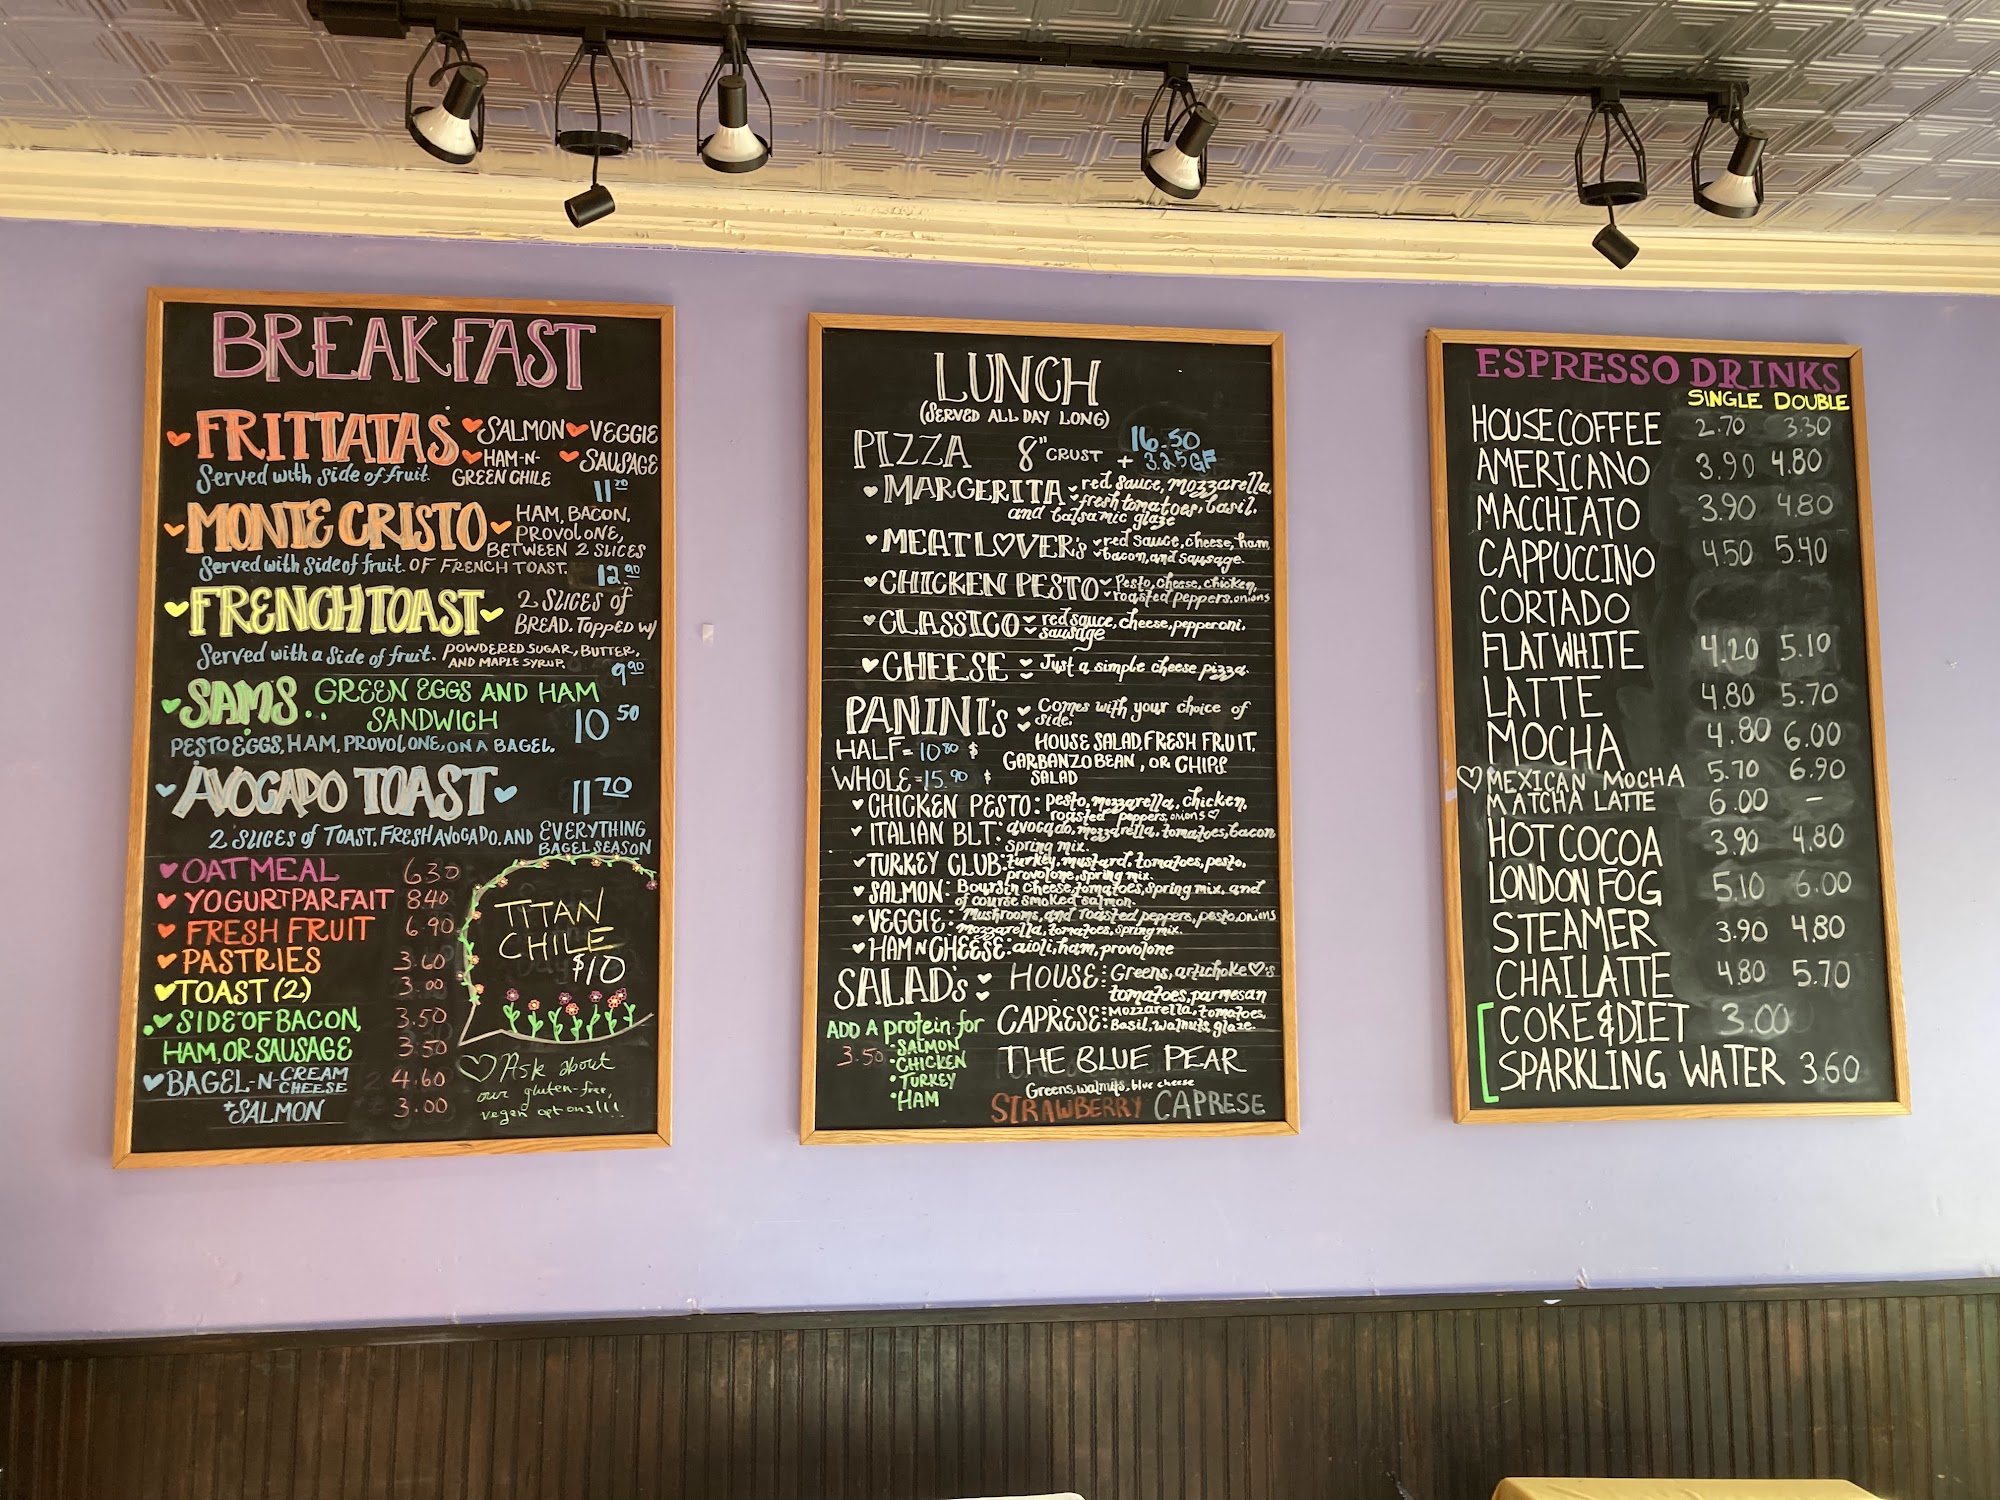 BREAKFAST
FRITTATAS SALMON VEGGIE
HAM-N- SAUSAGE
GREEN CHILE
Served with side of fruit.
11 70
MONTE CRISTO HAM, BACON,
PROVOLONE,
BETWEEN 2 SLICES
Served with side of fruit. OF FRENCH TOAST.
12.90
FRENCH TOAST 2 SLICES of
BREAD. TOPPED W/
Served with a side of fruit. POWDERED SUGAR, BUTTER,
AND MAPLE SYRUP.
9 90
SAM'S.. GREEN EGGS AND HAM
SANDWICH 10 50
PESTO EGGS, HAM, PROVOLONE, ON A BAGEL.
AVOCADO TOAST 11 70
2 SLICES of TOAST, FRESH AVOCADO, AND EVERYTHING
BAGEL SEASON
OATMEAL 630
YOGURT PARFAIT 840
FRESH FRUIT 6.90
PASTRIES 3.60
TOAST (2) 3.00
SIDE OF BACON, 3.50
HAM, OR SAUSAGE 3.50
BAGEL-N-CREAM
CHEESE 4.60
+SALMON 3.00
TITAN
CHILE
$10
Ask about
our gluten-free,
vegan options!!!
LUNCH
(SERVED ALL DAY LONG)
PIZZA 8" CRUST 16.50
+ 3.25 GF
MARGERITA red sauce, mozzarella,
fresh tomatoes, basil,
and balsamic glaze
MEAT LOVER'S red sauce, cheese, ham,
bacon, and sausage.
CHICKEN PESTO Pesto, cheese, chicken,
roasted peppers, onions
CLASSICO red sauce, cheese, pepperoni,
sausage
CHEESE Just a simple cheese pizza.
PANINI'S Comes with your choice of
side:
HALF = 10 80 $ HOUSE SALAD, FRESH FRUIT,
GARBANZO BEAN, OR CHIPS
WHOLE = 15.90 $ SALAD
CHICKEN PESTO: pesto, mozzarella, chicken,
roasted peppers, onions
ITALIAN BLT: avocado, mozzarella, tomatoes, bacon
spring mix.
TURKEY CLUB: turkey, mustard, tomatoes, pesto,
provolone, spring mix.
SALMON: Boursin cheese, tomatoes, spring mix, and
of course smoked salmon.
VEGGIE: Mushrooms, and roasted peppers, pesto, onions
mozzarella, tomatoes, spring mix.
HAM N CHEESE: aioli, ham, provolone
SALAD'S HOUSE: Greens, artichoke 's
tomatoes, parmesan
CAPRESE: Mozzarella, tomatoes,
Basil, walnuts, glaze.
ADD A protein for
3.50 • SALMON
• CHICKEN
• TURKEY
• HAM
THE BLUE PEAR
Greens, walnuts, blue cheese
STRAWBERRY CAPRESE
ESPRESSO DRINKS
SINGLE DOUBLE
HOUSE COFFEE 2.70 3.30
AMERICANO 3.90 4.80
MACCHIATO 3.90 4.80
CAPPUCCINO 4.50 5.40
CORTADO
FLAT WHITE 4.20 5.10
LATTE 4.80 5.70
MOCHA 4.80 6.00
MEXICAN MOCHA 5.70 6.90
MATCHA LATTE 6.00 -
HOT COCOA 3.90 4.80
LONDON FOG 5.10 6.00
STEAMER 3.90 4.80
CHAI LATTE 4.80 5.70
COKE & DIET 3.00
SPARKLING WATER 3.60